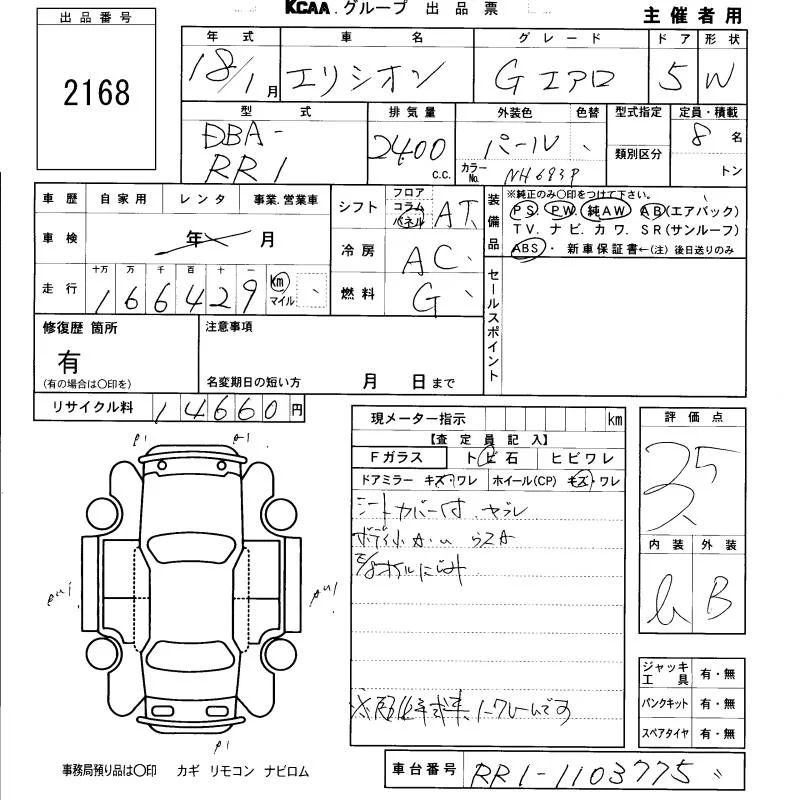 KCAA.グループ 出品票
主催者用
出品番号
2168
年式 車名 グレード ドア 形状
18/1月 エリシオン Gエアロ 5 W
型式 排気量 外装色 色替 型式指定 定員・積載
DBA-
RR1 2400 c.c. パール カラーNo. NH683P 類別区分 8名
トン
車歴 自家用 レンタ 事業.営業車
車検 年 月
走行 十万 万 千 百 十 一
166429 km マイル
シフト フロア コラム パネル AT
冷房 AC
燃料 G
装備品
※純正のみ〇印をつけて下さい。
PS. PW. 純AW AB(エアバック)
TV. ナビ. カワ. SR(サンルーフ)
ABS・新車保証書←(注)後日送りのみ
セールスポイント
修復歴 箇所
有
(有の場合は〇印を)
注意事項
名変期日の短い方 月 日まで
リサイクル料 14660円
現メーター指示 km
【査定員記入】
Fガラス トビ石 ヒビワレ
ドアミラー キズ・ワレ ホイール(CP) キズ・ワレ
シートカバー付.ヤブレ
評価点
3.5
内装 外装
B
ジャッキ工具 有・無
パンクキット 有・無
スペアタイヤ 有・無
事務局預り品は〇印 カギ リモコン ナビロム
車台番号 RR1-1103775